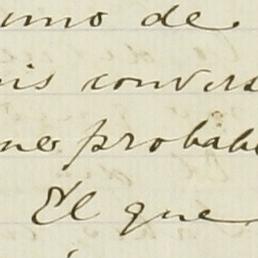 umo de
is convers
ne probabl
El que